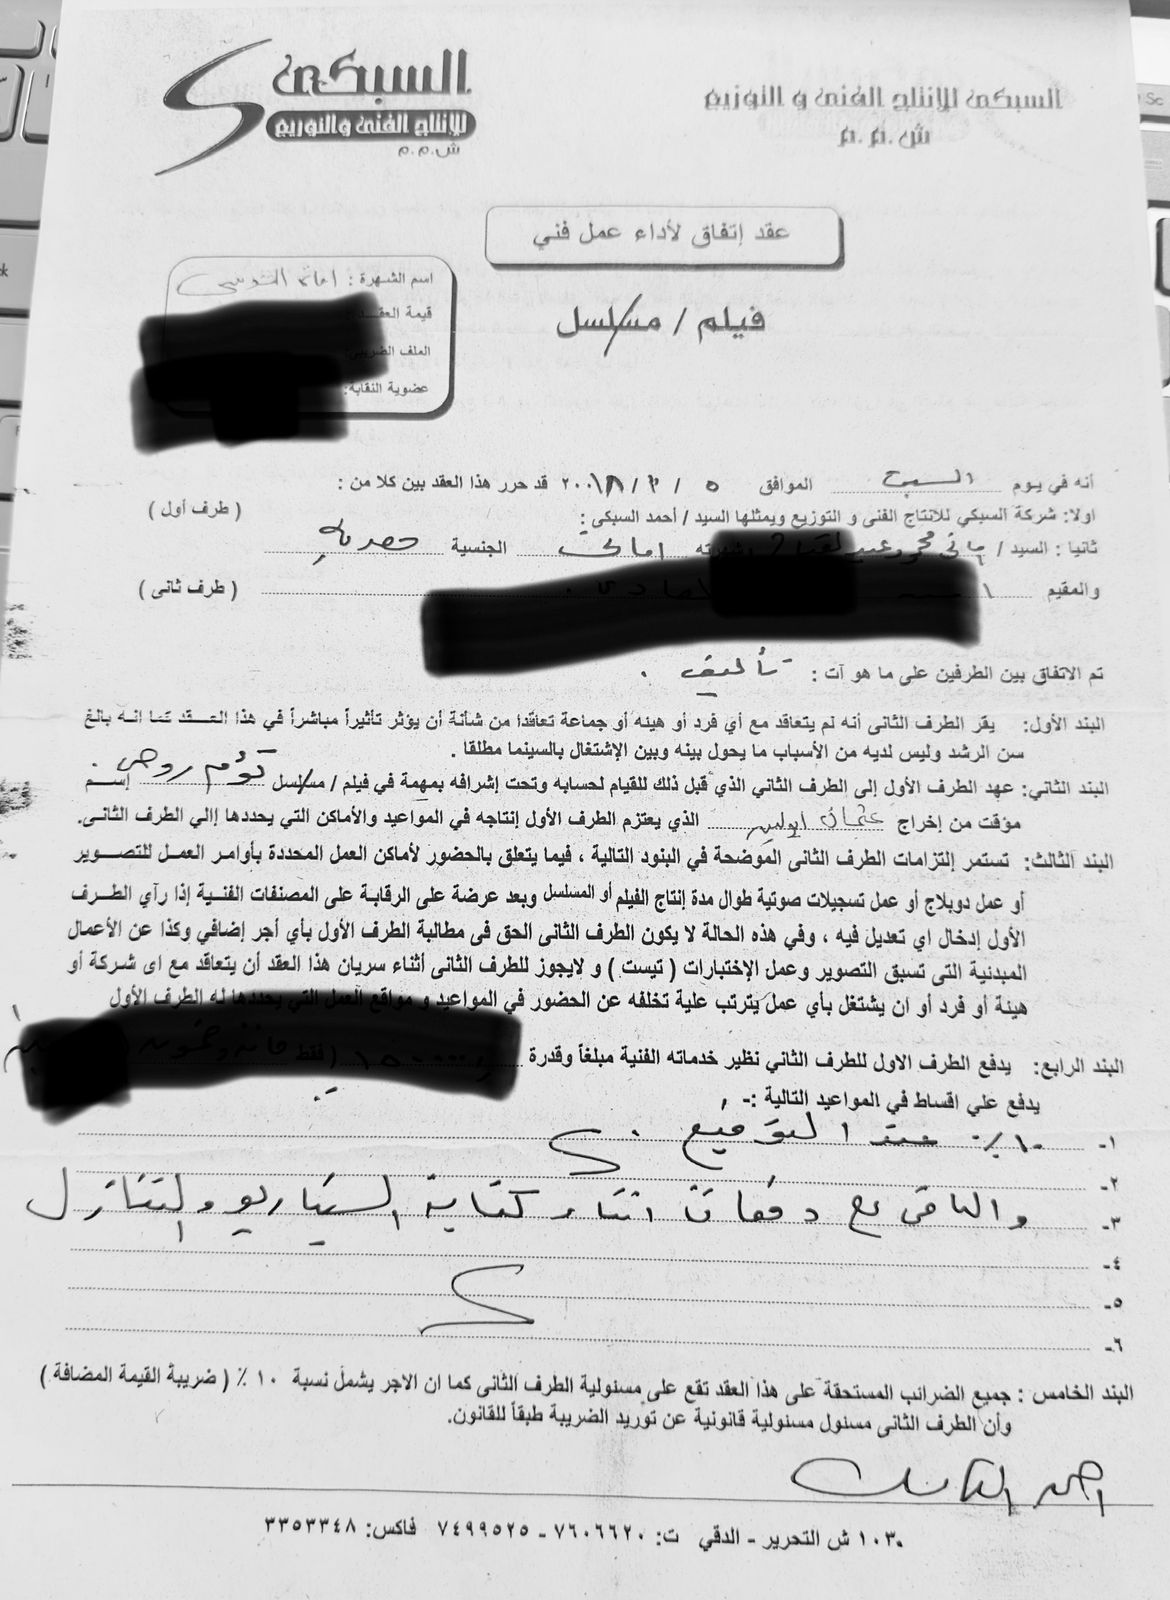 السبكى
للإنتاج الفنى والتوزيع
ش.م.م
السبكى للإنتاج الفنى و التوزيع
ش.م.م
عقد إتفاق لأداء عمل فني
اسم الشهرة :
قيمة العقد:
الملف الضريبى:
عضوية النقابة:
فيلم / مسلسل
أنه في يوم السبت الموافق ٥ / ٣ / ٢٠٠١٨ قد حرر هذا العقد بين كلا من :
اولا: شركة السبكي للانتاج الفنى و التوزيع ويمثلها السيد / أحمد السبكى : ( طرف أول )
ثانيا : السيد / الجنسية مصرية
والمقيم ( طرف ثانى )
تم الاتفاق بين الطرفين على ما هو آت : تأليف .
البند الأول: يقر الطرف الثانى أنه لم يتعاقد مع أي فرد أو هينه أو جماعة تعاقدا من شأنة أن يؤثر تأثيراً مباشراً في هذا العقد كما انه بالغ
سن الرشد وليس لديه من الأسباب ما يحول بينه وبين الإشتغال بالسينما مطلقا .
البند الثاني: عهد الطرف الأول إلى الطرف الثاني الذي قبل ذلك للقيام لحسابه وتحت إشرافه بمهمة في فيلم / مسلسل توأم روحى إسم
مؤقت من إخراج عثمان ابولبن الذي يعتزم الطرف الأول إنتاجه في المواعيد والأماكن التي يحددها إالي الطرف الثانى.
البند الثالث: تستمر إلتزامات الطرف الثانى الموضحة في البنود التالية ، فيما يتعلق بالحضور لأماكن العمل المحددة بأوامر العمل للتصوير
أو عمل دوبلاج أو عمل تسجيلات صوتية طوال مدة إنتاج الفيلم أو المسلسل وبعد عرضة على الرقابة على المصنفات الفنية إذا رآي الطرف
الأول إدخال اي تعديل فيه ، وفي هذه الحالة لا يكون الطرف الثانى الحق فى مطالبة الطرف الأول بأي أجر إضافي وكذا عن الأعمال
المبدنية التى تسبق التصوير وعمل الإختبارات ( تيست ) و لايجوز للطرف الثانى أثناء سريان هذا العقد أن يتعاقد مع اى شركة أو
هيئة أو فرد أو ان يشتغل بأي عمل يترتب علية تخلفه عن الحضور في المواعيد و مواقع العمل التي يحددها له الطرف الأول
البند الرابع: يدفع الطرف الاول للطرف الثاني نظير خدماته الفنية مبلغاً وقدرة
يدفع علي اقساط في المواعيد التالية :-
١- ١٠٪ عند التوقيع .
٢-
٣- والباقى على دفعات اثناء كتابة السيناريو والتنازل
٤-
٥-
٦-
البند الخامس : جميع الضرائب المستحقة على هذا العقد تقع على مسئولية الطرف الثانى كما ان الاجر يشمل نسبة ١٠ ٪ ( ضريبة القيمة المضافة )
وأن الطرف الثانى مسئول مسئولية قانونية عن توريد الضريبة طبقاً للقانون.
١٠٣ ش التحرير - الدقي ت: ٧٦٠٦٦٢٠ - ٧٤٩٩٥٢٥ فاكس: ٣٣٥٣٣٤٨